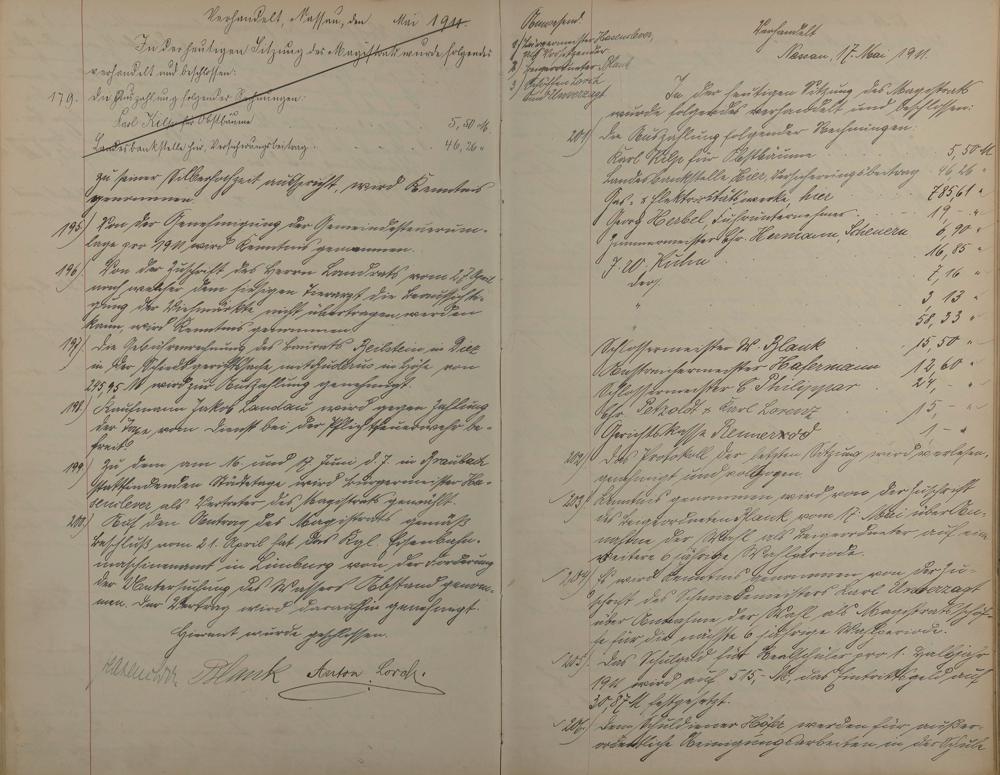 Verhandelt, Nassau, den Mai 1911.
In der heutigen Sitzung des Magistrats wurde folgendes
verhandelt und beschlossen:
179. Die Auszahlung folgender Rechnungen:
Karl Kilp für Obstbäume 5,50 M.
Landesbankstelle hier, Versicherungsbeitrag. 46,26 "
zu seiner Silberhochzeit ausspricht, wird Kenntnis
genommen.
195) Von der Genehmigung der Gemeindesteuerum-
lage pro 1911 wird Kenntnis genommen.
196) Von der Zuschrift des Herrn Landrats vom 27 April
nach welcher dem hiesigen Tierarzt die Beaufsichti-
gung der Viehmärkte nicht übertragen werden
kann, wird Kenntnis genommen.
197) Die Gebührenrechnung des Baurats Beilstein in Diez
in der Schiedsgerichtssache in Höhe von
245,95 M wird zur Auszahlung genehmigt.
198) Kaufmann Jakob Landau wird gegen Zahlung
der Taxe, vom Dienst bei der Pflichtfeuerwehr be-
freit.
199) Zu dem am 16. und 17 Juni d. J. in Braubach
stattfindenden Städtetage wird Bürgermeister Ha-
senclever als Vertreter des Magistrats gewählt.
200) Auf den Antrag des Magistrats gemäß
Beschluß vom 21. April hat das Kgl. Eisenbahn-
maschinenamt in Limburg von der Forderung
der Untersuchung des Wassers Abstand genom-
men. Der Vertrag wird daraufhin genehmigt.
Hierauf wurde geschlossen.
Hasenclever Blank Anton Lorch.
Anwesend
1) Bürgermeister Hasenclever,
als Vorsitzender
2) Beigeordneter Blank
3) Schöffen Lorch
und Unverzagt
Verhandelt
Nassau, 17. Mai 1911.
In der heutigen Sitzung des Magistrats
wurde folgendes verhandelt und beschlossen:
201) Die Auszahlung folgender Rechnungen:
Karl Kilp für Obstbäume 5,50 M
Landesbankstelle hier, Versicherungsbeitrag 46,26 "
Gas- & Elektrizitätswerke, hier 785,61 "
Georg Herbel Fuhrunternehmer 19,- "
Zimmermeister Chr. Hermann, Scheuern 6,90 "
J. W. Kuhn 16,85 "
Ders. 7,16 "
" 3,13 "
" 58,33 "
Schlossermeister W. Blank 15,50 "
Anstreichermeister Hafermann 12,60 "
Schlossermeister C Philippar 24,- "
Chr. Petzoldt & Karl Lorenz 15,- "
Gerichtskasse Rennerod 1 - "
202) Das Protokoll der letzten Sitzung wird verlesen,
genehmigt und vollzogen.
203) Kenntnis genommen wird von der Zuschrift
des Beigeordneten Blank vom 17. Mai über An-
nahme der Wahl als Beigeordneter auf eine
weitere 6 jährige Wahlperiode.
204) Es wird Kenntnis genommen von der Zu-
schrift des Schmiedemeisters Karl Unverzagt
über Annahme der Wahl als Magistratsschöf-
fe für die nächste 6 jährige Wahlperiode.
205) Das Schulgeld für Realschüler pro 1. Halbjahr
1911 wird auf 515,- M, das Eintrittsgeld auf
30,87 M festgesetzt.
206) Dem Schuldiener Höfer werden für außer-
ordentliche Reinigungsarbeiten in der Schule